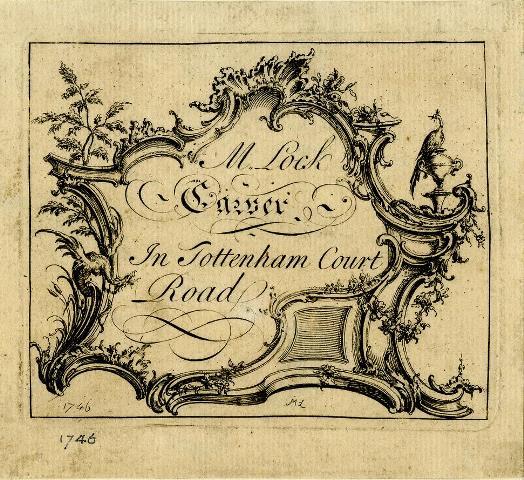 M. Lock
Carver
In Tottenham Court
Road
1746
ML
1746